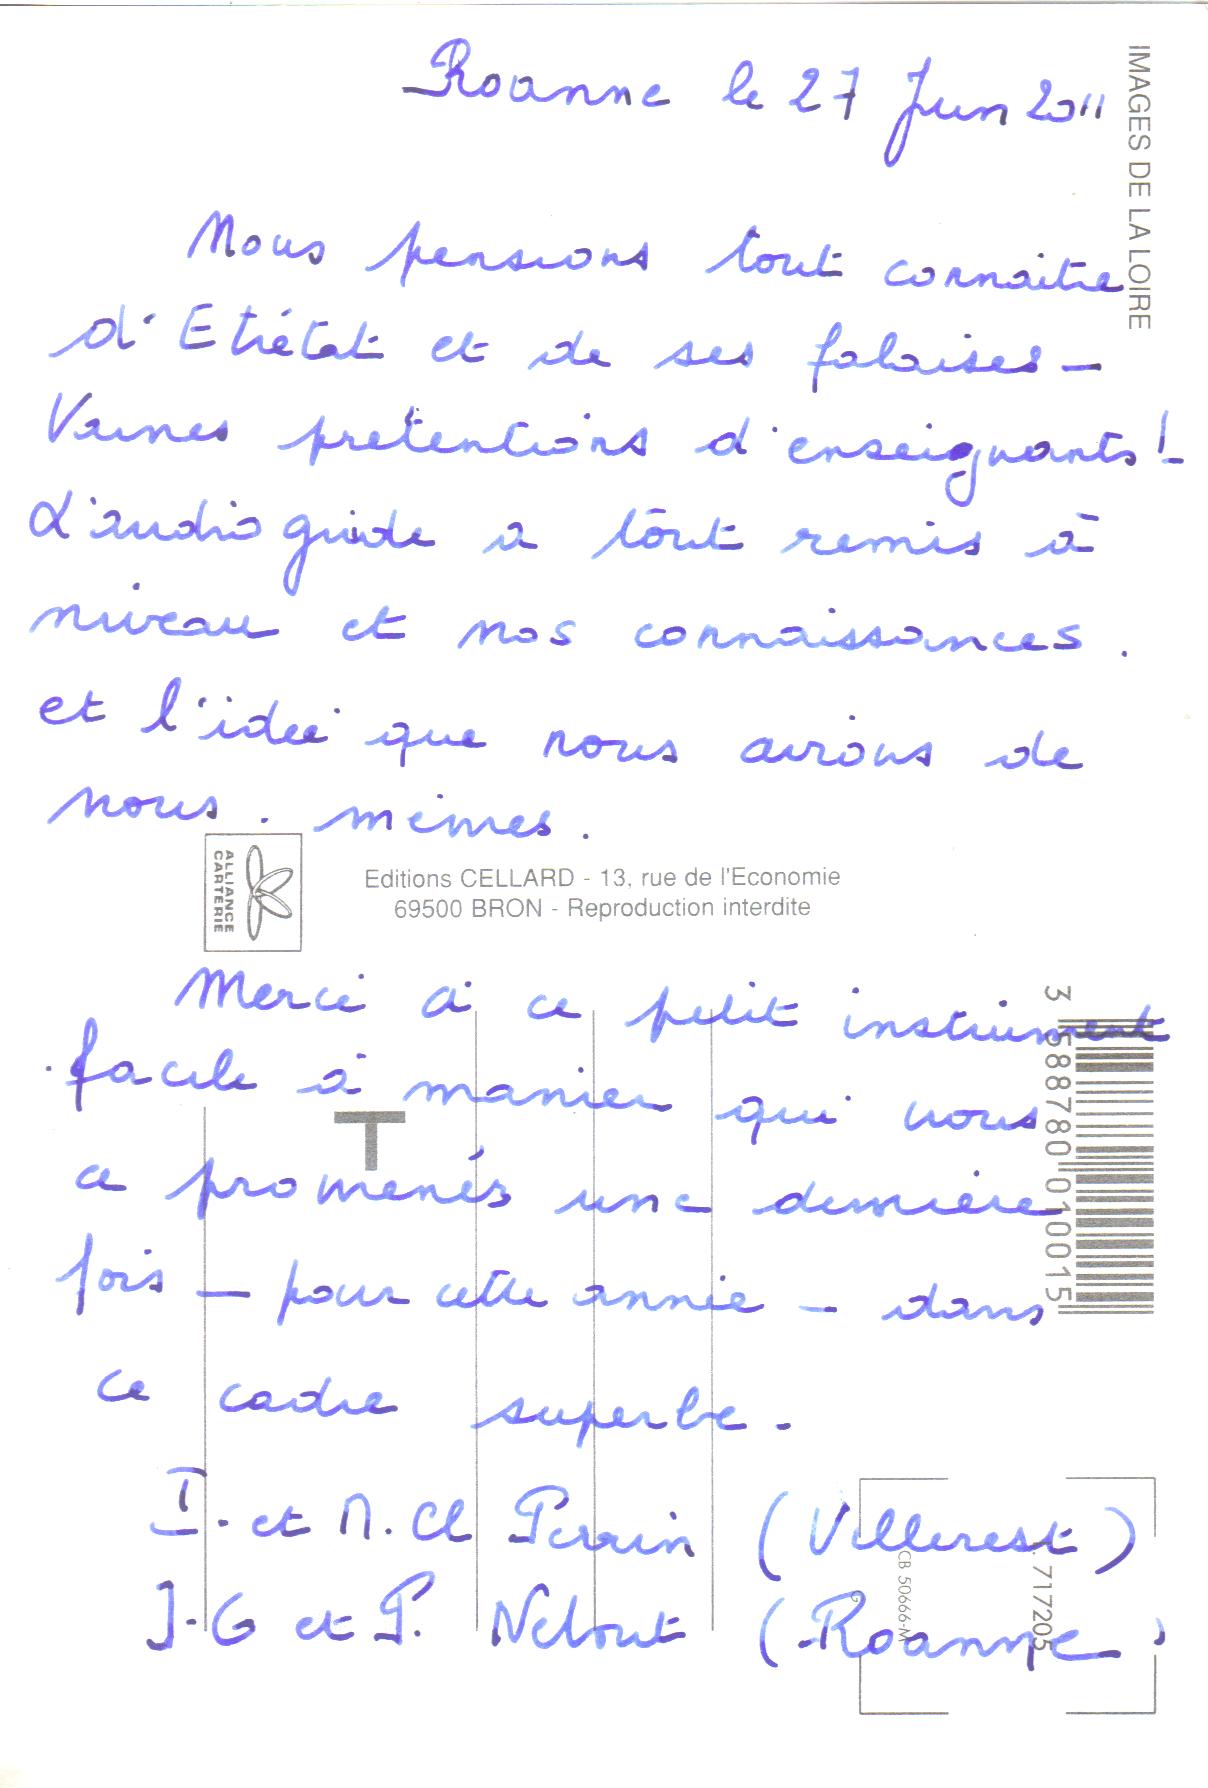 Roanne le 27 Juin 2011
IMAGES DE LA LOIRE
Nous pensions tout connaitre
d'Etrétat et de ses falaises -
Vaines prétentions d'enseignants !
L'audio guide a tout remis à
niveau et nos connaissances.
et l'idée que nous avions de
nous. mêmes.
ALLIANCE
CARTERIE
Editions CELLARD - 13, rue de l'Economie
69500 BRON - Reproduction interdite
Merci à ce petit instrument
facile à manier qui nous
a promenés une dernière
fois - pour cette année - dans
ce cadre superbe.
I. et M. Cl Perrin (Villerest)
J-G et P. Nebout (Roanne)
T
3 588780 010015
CB 50666-M
G
717205